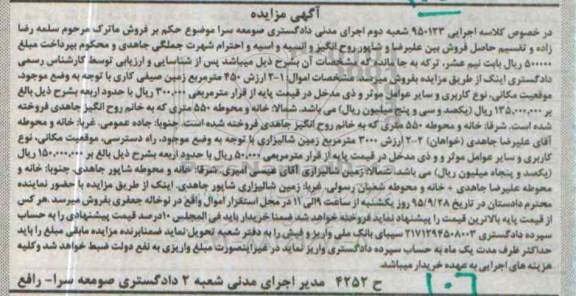 آگهی مزایده
در خصوص کلاسه اجرایی ۹۵۰۱۲۳ شعبه دوم اجرای مدنی دادگستری صومعه سرا موضوع حکم بر فروش ماترک مرحوم سلمه رضا
زاده و تقسیم حاصل فروش بین علیرضا و شاپور روح انگیز و انسیه و اسیه و احترام شهرت جملگی جاهدی و محکوم بپرداخت مبلغ
۵۰۰۰۰۰ ریال بابت نیم عشر، ترکه به جا مانده که مشخصات آن بشرح ذیل میباشد پس از شناسایی و ارزیابی توسط کارشناس رسمی
دادگستری اینک از طریق مزایده بفروش میرسد. مشخصات اموال: ۱-۲ ارزش ۴۵۰ مترمربع زمین صیفی کاری با توجه به وضع موجود،
موقعیت مکانی، نوع کاربری و سایر عوامل موثر و ذی مدخل در قیمت پایه از قرار مترمربعی ۳۰۰,۰۰۰ ریال با حدود اربعه بشرح ذیل بالغ
بر ۱۳۵,۰۰۰,۰۰۰ ریال (یکصد و سی و پنج میلیون ریال) می باشد. شمالا: خانه و محوطه ۵۵۰ متری که به خانم روح انگیز جاهدی فروخته
شده است. شرقا: خانه و محوطه ۵۵۰ متری که به خانم روح انگیز جاهدی فروخته شده است. جنوبا: جاده عمومی. غربا: خانه و محوطه
آقای علیرضا جاهدی (خواهان) ۲-۲ ارزش ۳۰۰۰ مترمربع زمین شالیزاری با توجه به وضع موجود، راه دسترسی، موقعیت مکانی، نوع
کاربری و سایر عوامل موثر و و ذی مدخل در قیمت پایه از قرار مترمربعی ۵۰,۰۰۰ ریال با حدود اربعه بشرح ذیل بالغ بر ۱۵۰,۰۰۰,۰۰۰ ریال
(یکصد و پنجاه میلیون ریال) می باشد. شمالا: زمین شالیزاری آقای عیسی امیری. شرقا: خانه و محوطه شاپور جاهدی. جنوبا: خانه و
محوطه علیرضا جاهدی + خانه و محوطه شعبان رسولی. غربا: زمین شالیزاری شاپور جاهدی. اینک از طریق مزایده با حضور نماینده
محترم دادستان در تاریخ ۹۵/۹/۲۸ روز یکشنبه از ساعت ۹ الی ۱۱ در محل استقرار اموال واقع در لوخاله جعفری بفروش میرسد .هر کس
از قیمت پایه بالاترین قیمت را پیشنهاد نماید فروخته خواهد شد.ضمنا خریدار باید فی المجلس ۱۰ درصد قیمت پیشنهادی را به حساب
سپرده دادگستری ۲۱۷۱۲۹۴۵۰۸۰۰۳ سیبای بانک ملی واریز و فیش را به دفتر شعبه تحویل نماید. ضمنابرنده مزایده مابقی مبلغ را باید
حداکثر ظرف مدت یک ماه به حساب سپرده دادگستری واریز نماید در غیراینصورت مبلغ واریزی به نفع دولت ضبط خواهد شد وکلیه
هزینه های اجرایی به عهده خریدار میباشد.
ح ۴۲۵۲ مدیر اجرای مدنی شعبه ۲ دادگستری صومعه سرا- رافع
۱۰۶